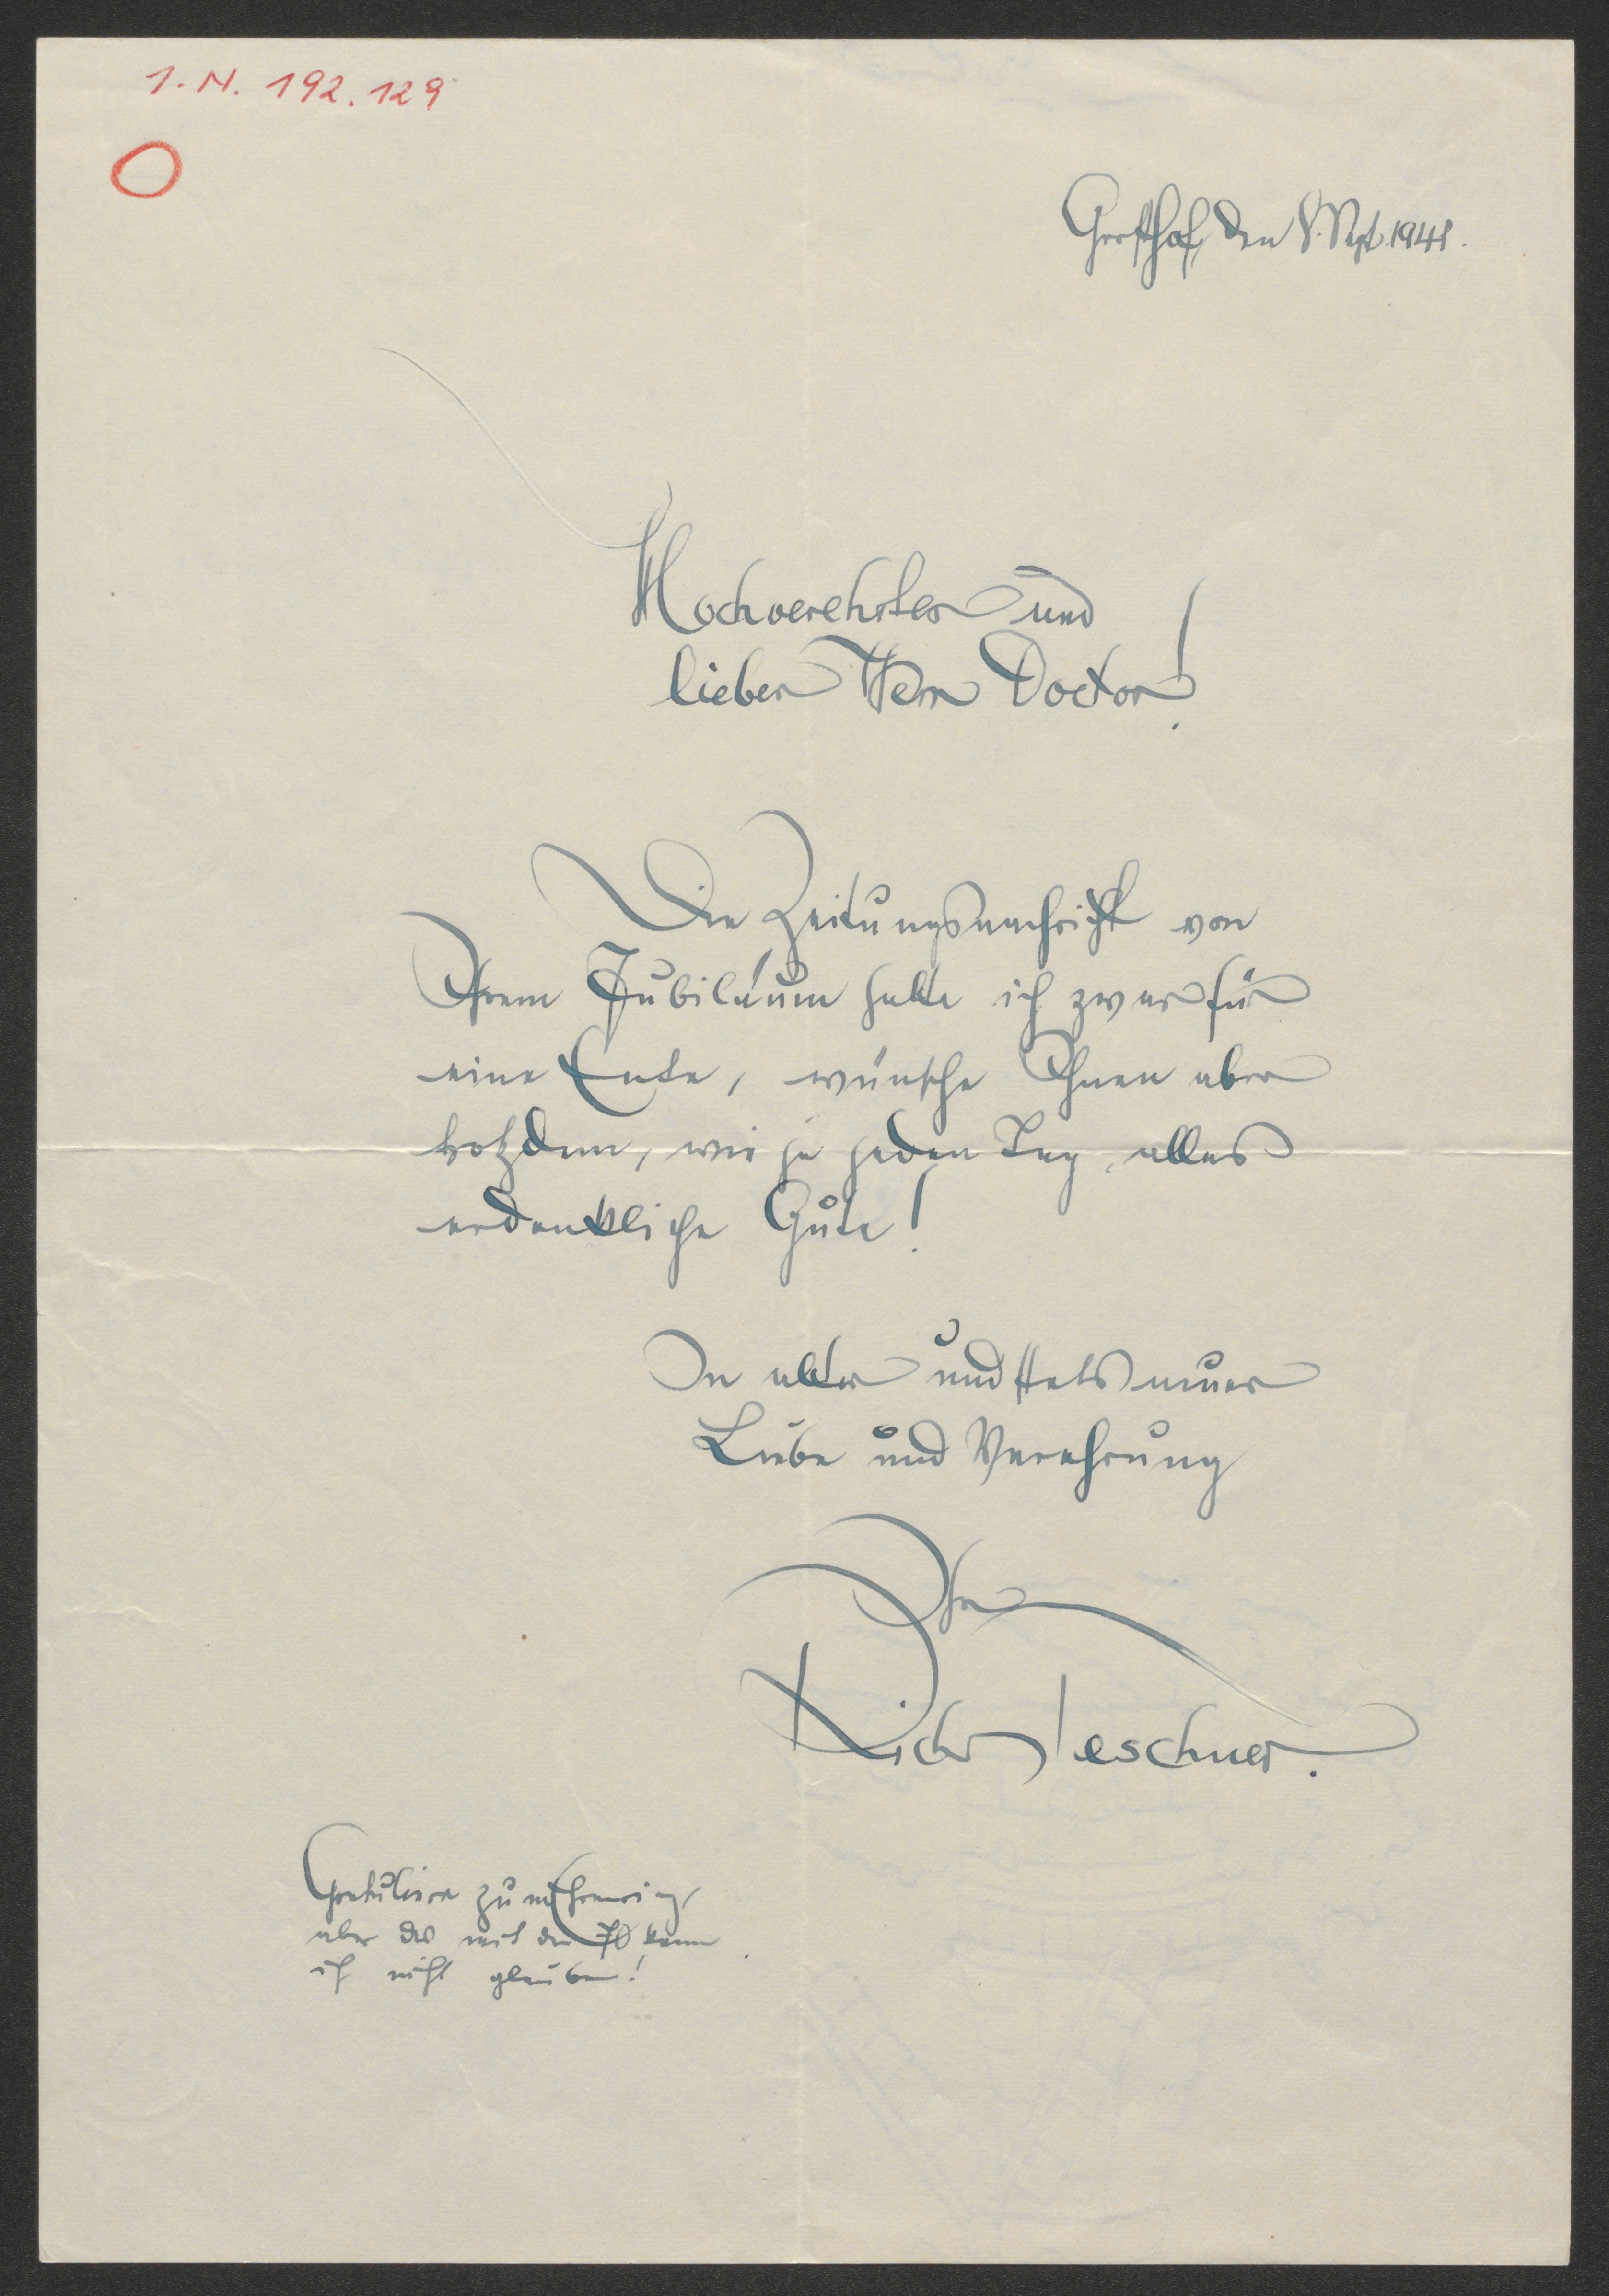 I. N. 192.129
Gersthof, den 8. Sept. 1941.
Hochverehrter und
lieber Herr Doctor!
Die Zeitungsnachricht von
Ihrem Jubiläum halte ich zwar für
eine Ente, wünsche Ihnen aber
trotzdem, wie ja jeden Tag, alles
erdenkliche Gute!
In alter und stets neuer
Liebe und Verehrung
Ihr
Rich Teschner.
Gratuliere zum Ehrenring,
aber das mit den 70 kann
ich nicht glauben!